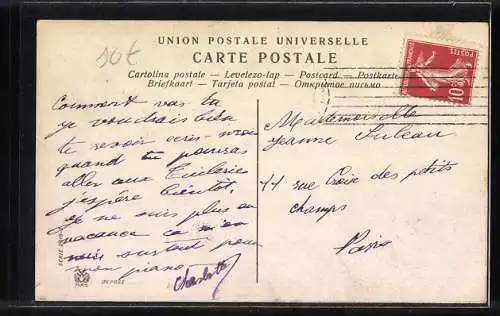 10€
UNION POSTALE UNIVERSELLE
CARTE POSTALE
Cartolina postale — Levelezo-lap — Postcard — Postkarte
Briefkaart — Tarjeta postal — Открытое письмо
POSTES
10c
Comment vas tu
je voudrais bien
te revoir ecris-moi
quand tu pourras
aller aux Tuileries
j'espère bientôt.
je ne suis plus en
vacance ca m'en
surtout pour
mon piano
Charlotte
Mademoiselle
Jeanne
11 rue Croix des petits
champs
Paris
DÉPOSÉ